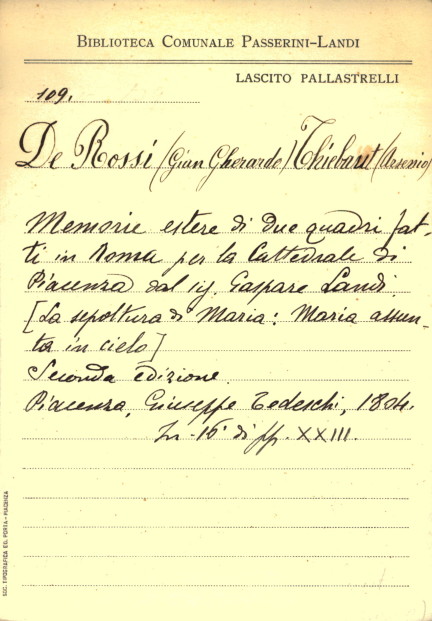 BIBLIOTECA COMUNALE PASSERINI-LANDI
LASCITO PALLASTRELLI
109.
De Rossi (Gian Gherardo) Thiebaut (Arsenio)
Memorie estere di due quadri fat-
ti in Roma per la Cattedrale di
Piacenza dal sig. Gaspare Landi.
[La sepoltura di Maria: Maria assun-
ta in cielo]
Seconda edizione.
Piacenza, Giuseppe Tedeschi, 1804.
In-16° di pp. XXIII.
SOC. TIPOGRAFICA ED. PORTA - PIACENZA